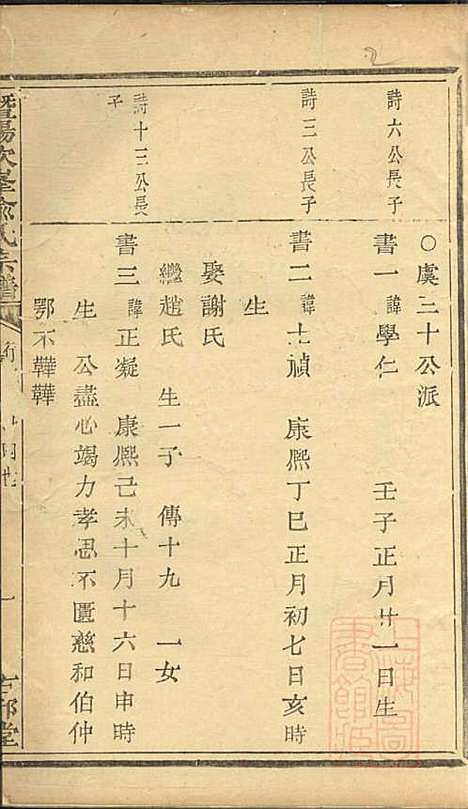 ○虞三十公派
詩六公長子
書一 諱學仁 壬子正月廿一日生
詩三公長子
書二 諱士禎 康熙丁巳正月初七日亥時
生
娶謝氏
繼趙氏 生一子 傳十九 一女
詩十三公長
子
書三 諱正凝 康熙己未十月十六日申時
生 公盡心竭力孝思不匱慈和伯仲
鄂不韡韡
暨陽次峯俞氏宗譜
行
一